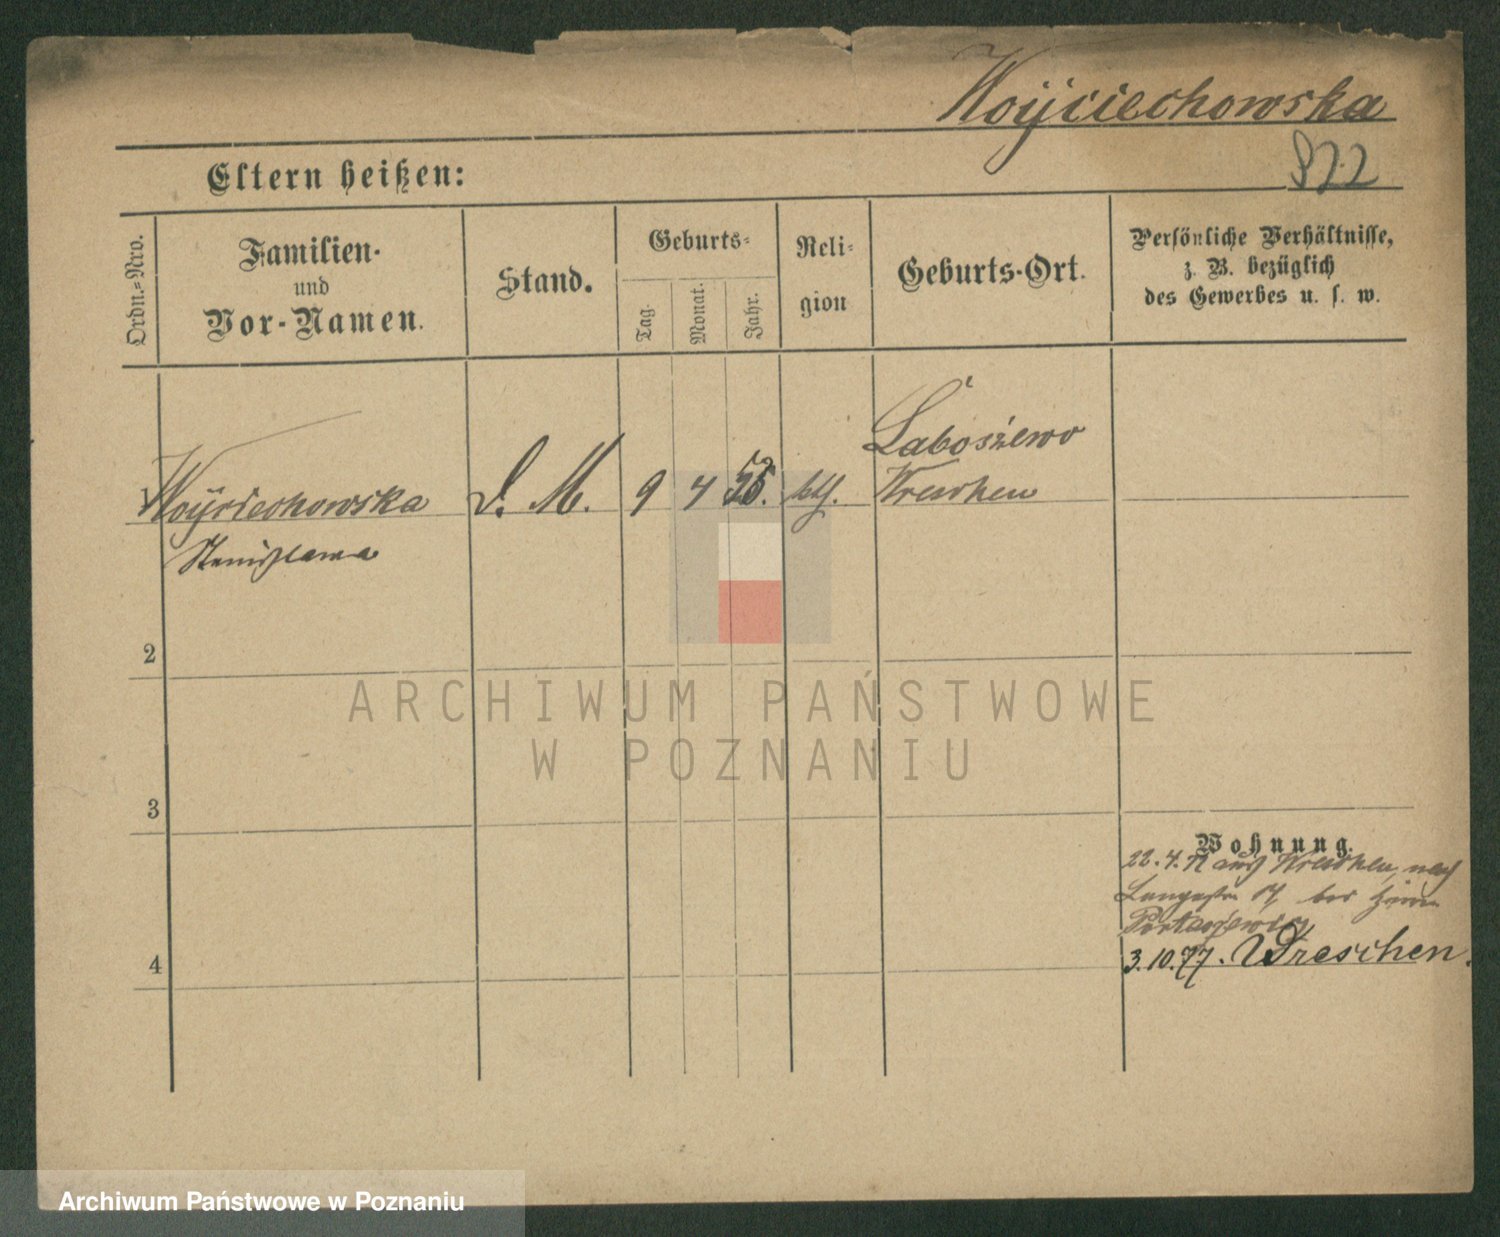 Woyciechowska
822
Eltern heißen:
Ordn.=Nro.
Familien-
und
Vor-Namen.
Stand.
Geburts-
Tag.
Monat.
Jahr.
Reli-
gion
Geburts-Ort.
Persönliche Verhältnisse,
z. B. bezüglich
des Gewerbes u. s. w.
Woyciechowska
Stanislawa
D. M.
9
4
kth.
Laboszewo
Wreschen
2
3
4
Wohnung.
22.4.77 aus Wreschen, nach
bei
3.10.77. Wreschen.
ARCHIWUM PAŃSTWOWE
W POZNANIU
Archiwum Państwowe w Poznaniu